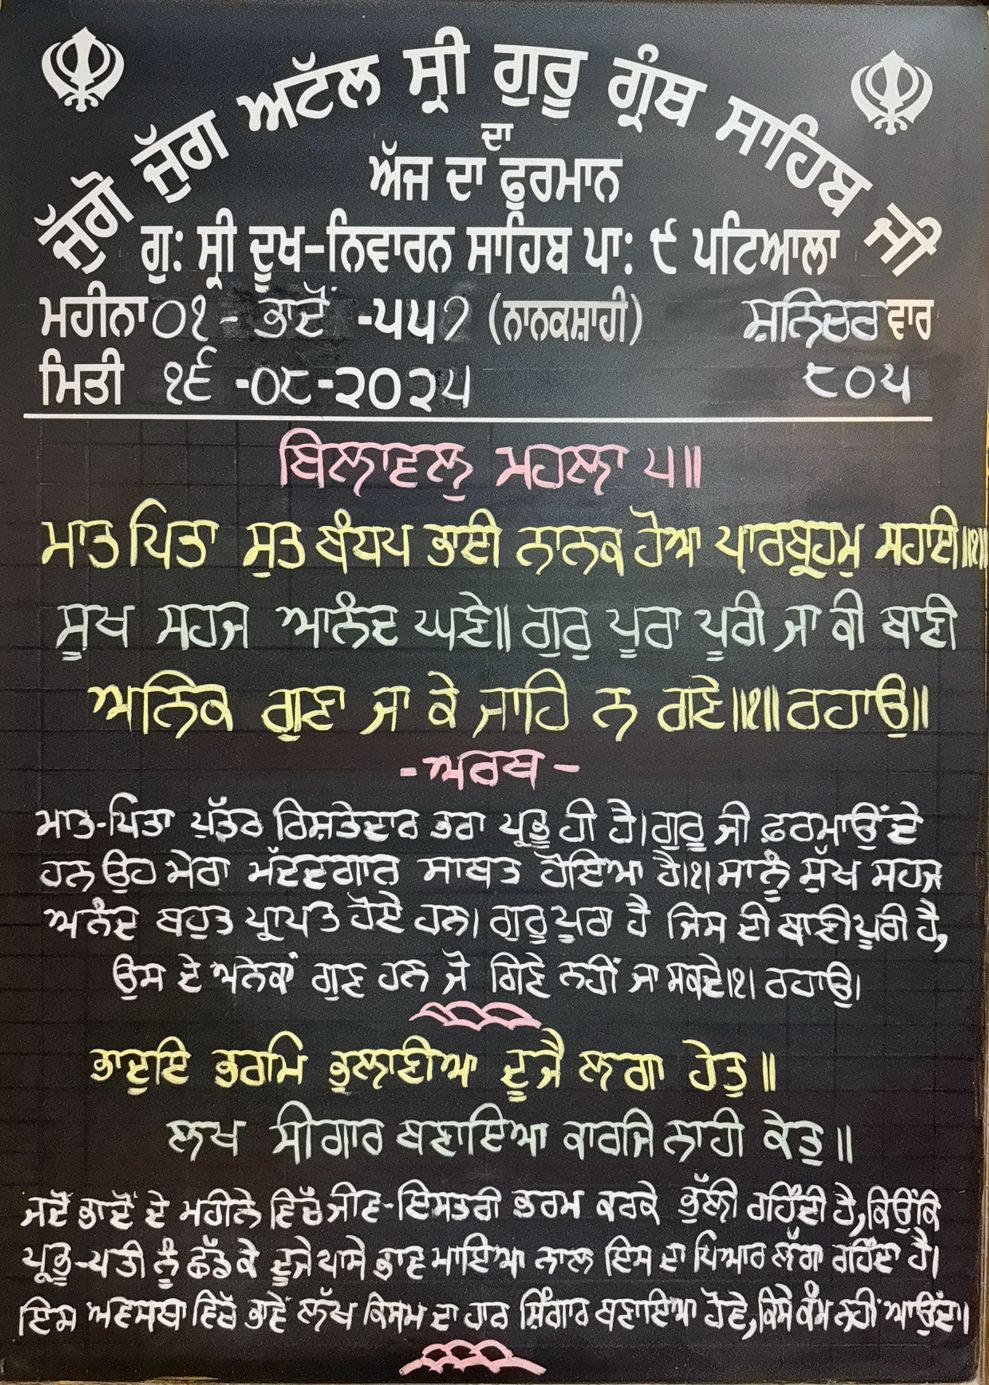 ਜੁੱਗੋ ਜੁੱਗ ਅਟੱਲ ਸ੍ਰੀ ਗੁਰੂ ਗ੍ਰੰਥ ਸਾਹਿਬ ਜੀ
ਦਾ
ਅੱਜ ਦਾ ਫੁਰਮਾਨ
ਗੁ: ਸ੍ਰੀ ਦੂਖ-ਨਿਵਾਰਨ ਸਾਹਿਬ ਪਾ: ੯ ਪਟਿਆਲਾ
ਮਹੀਨਾ ੦੧ - ਭਾਦੋਂ -੫੫੭ (ਨਾਨਕਸ਼ਾਹੀ) ਸ਼ਨਿਚਰ ਵਾਰ
ਮਿਤੀ ੧੬ -੦੮-੨੦੨੫ ੮੦੫
ਬਿਲਾਵਲੁ ਮਹਲਾ ੫॥
ਮਾਤ ਪਿਤਾ ਸੁਤ ਬੰਧਪ ਭਾਈ ਨਾਨਕ ਹੋਆ ਪਾਰਬ੍ਰਹਮੁ ਸਹਾਈ॥੧॥
ਸੂਖ ਸਹਜ ਆਨੰਦ ਘਣੇ॥ ਗੁਰੁ ਪੂਰਾ ਪੂਰੀ ਜਾ ਕੀ ਬਾਣੀ
ਅਨਿਕ ਗੁਣਾ ਜਾ ਕੇ ਜਾਹਿ ਨ ਗਣੇ॥੧॥ ਰਹਾਉ॥
-ਅਰਥ-
ਮਾਤ-ਪਿਤਾ ਪੁੱਤਰ ਰਿਸ਼ਤੇਦਾਰ ਭਰਾ ਪ੍ਰਭੂ ਹੀ ਹੈ। ਗੁਰੂ ਜੀ ਫ਼ਰਮਾਉਂਦੇ
ਹਨ ਉਹ ਮੇਰਾ ਮੱਦਦਗਾਰ ਸਾਬਤ ਹੋਇਆ ਹੈ।੧। ਸਾਨੂੰ ਸੁੱਖ ਸਹਜ
ਅਨੰਦ ਬਹੁਤ ਪ੍ਰਾਪਤ ਹੋਏ ਹਨ। ਗੁਰੂ ਪੂਰਾ ਹੈ ਜਿਸ ਦੀ ਬਾਣੀ ਪੂਰੀ ਹੈ,
ਉਸ ਦੇ ਅਨੇਕਾਂ ਗੁਣ ਹਨ ਜੋ ਗਿਣੇ ਨਹੀਂ ਜਾ ਸਕਦੇ।੧। ਰਹਾਉ।
ਭਾਦੁਇ ਭਰਮਿ ਭੁਲਾਣੀਆ ਦੂਜੈ ਲਗਾ ਹੇਤੁ॥
ਲਖ ਸੀਗਾਰ ਬਣਾਇਆ ਕਾਰਜਿ ਨਾਹੀ ਕੇਤੁ॥
ਜਦੋਂ ਭਾਦੋਂ ਦੇ ਮਹੀਨੇ ਵਿੱਚ ਜੀਵ-ਇਸਤਰੀ ਭਰਮ ਕਰਕੇ ਭੁੱਲੀ ਰਹਿੰਦੀ ਹੈ, ਕਿਉਂਕਿ
ਪ੍ਰਭੂ-ਪਤੀ ਨੂੰ ਛੱਡ ਕੇ ਦੂਜੇ ਪਾਸੇ ਭਾਵ ਮਾਇਆ ਨਾਲ ਇਸ ਦਾ ਪਿਆਰ ਲੱਗਾ ਰਹਿੰਦਾ ਹੈ।
ਇਸ ਅਵਸਥਾ ਵਿੱਚ ਭਾਵੇਂ ਲੱਖ ਕਿਸਮ ਦਾ ਹਾਰ ਸ਼ਿੰਗਾਰ ਬਣਾਇਆ ਹੋਵੇ, ਕਿਸੇ ਕੰਮ ਨਹੀਂ ਆਉਂਦਾ।